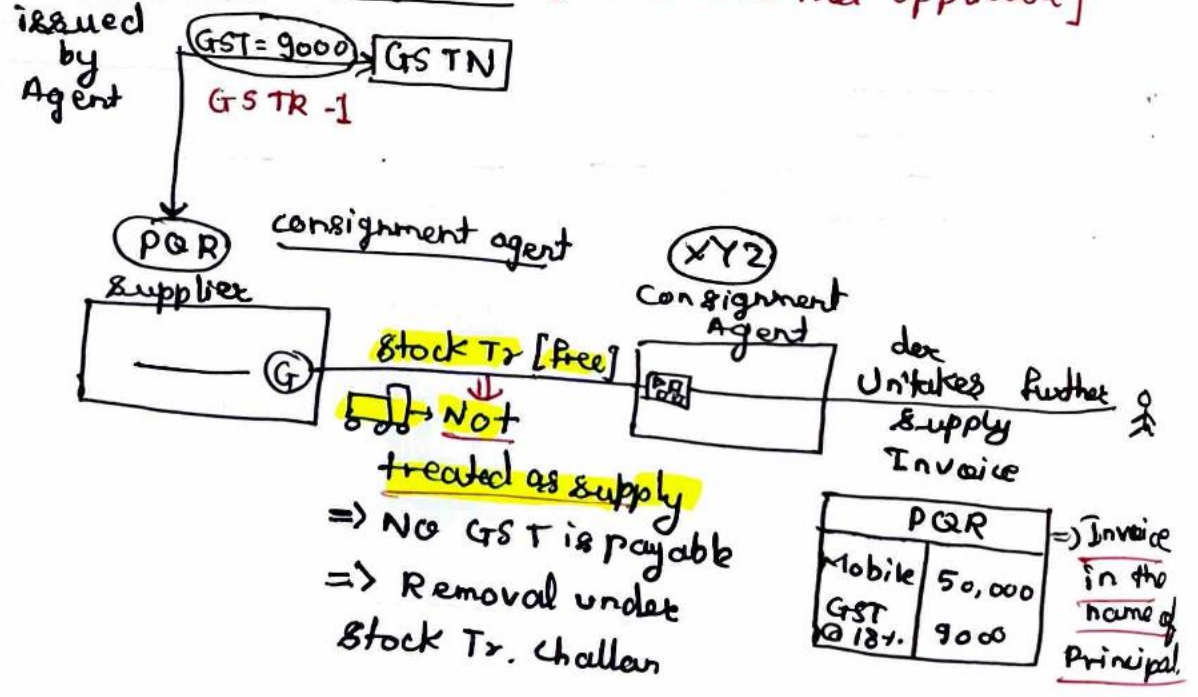 not applicable]
issued
by
Agent
GST = 9000
GSTN
GSTR -1
PQR
Supplier
consignment agent
XYZ
Consignment
Agent
G
Stock Tr [free]
Not
treated as supply
=> No GST is payable
=> Removal under
Stock Tr. Challan
der
Un'takes further
Supply
Invoice
PQR
Mobile 50,000
GST
@ 18%. 9000
=> Invoice
in the
name of
Principal.